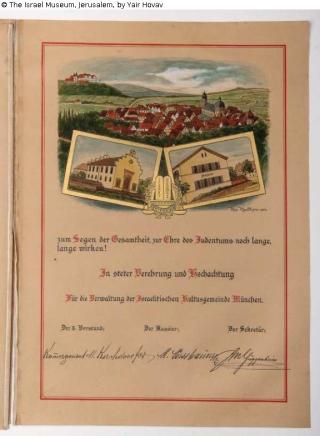 © The Israel Museum, Jerusalem, by Yair Hovav
zum Segen der Gesamtheit, zur Ehre des Judentums noch lange,
lange wirken!
In steter Verehrung und Hochachtung
Für die Verwaltung der Israelitischen Kultusgemeinde München.
Der I. Vorstand: Der Kassier: Der Sekretär: